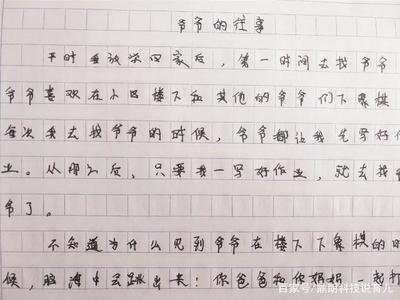 爷爷的往事
平时垂放学回家后，第一时间去找爷爷
爷爷喜欢在小区楼下和其他的爷爷们下象棋
每次我去找爷爷的时候，爷爷都让我先写好作
业。从那之后，只要我一写好作业，就去找
爷了。
不知道为什么见到爷爷在楼下下象棋的时
候，脑海中会跳出来：你爸爸和你妈妈一起打
百家号/鼎朗科技说育儿